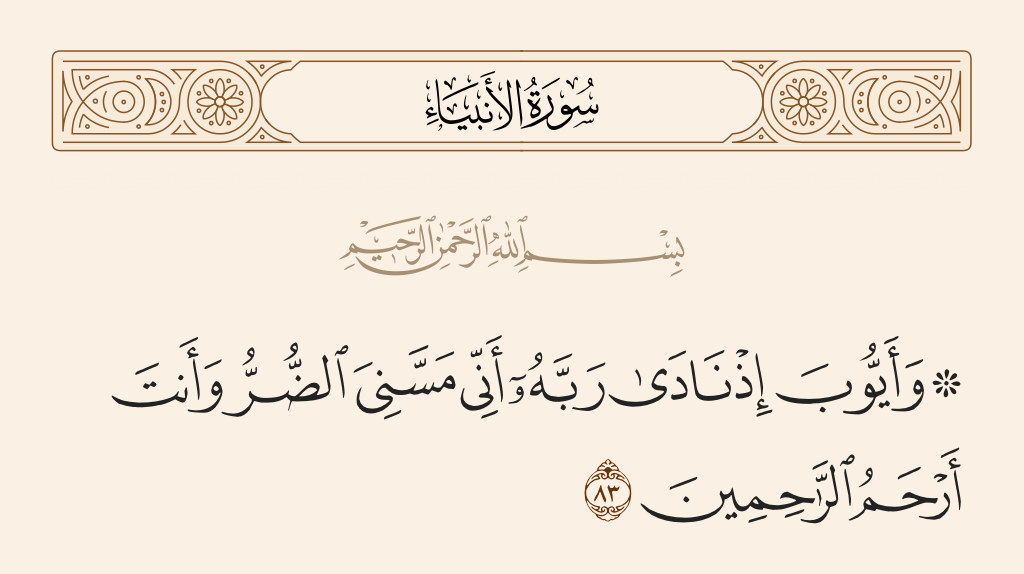 سُورَةُ الأَنبِيَاءِ
بِسْمِ ٱللَّهِ ٱلرَّحْمَٰنِ ٱلرَّحِيمِ
۞ وَأَيُّوبَ إِذْ نَادَىٰ رَبَّهُۥٓ أَنِّى مَسَّنِىَ ٱلضُّرُّ وَأَنتَ
أَرْحَمُ ٱلرَّٰحِمِينَ ٨٣